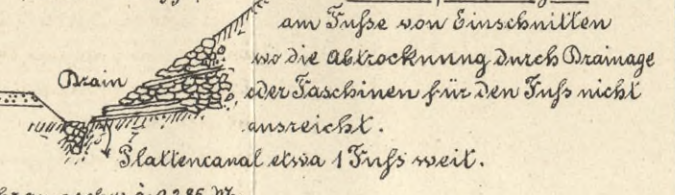 am Fuße von Einschnitten
wo die Abtrocknung durch Drainage
Drain
oder Faschinen für den Fuß nicht
ausreicht.
Plattencanal etwa 1 Fuß weit.